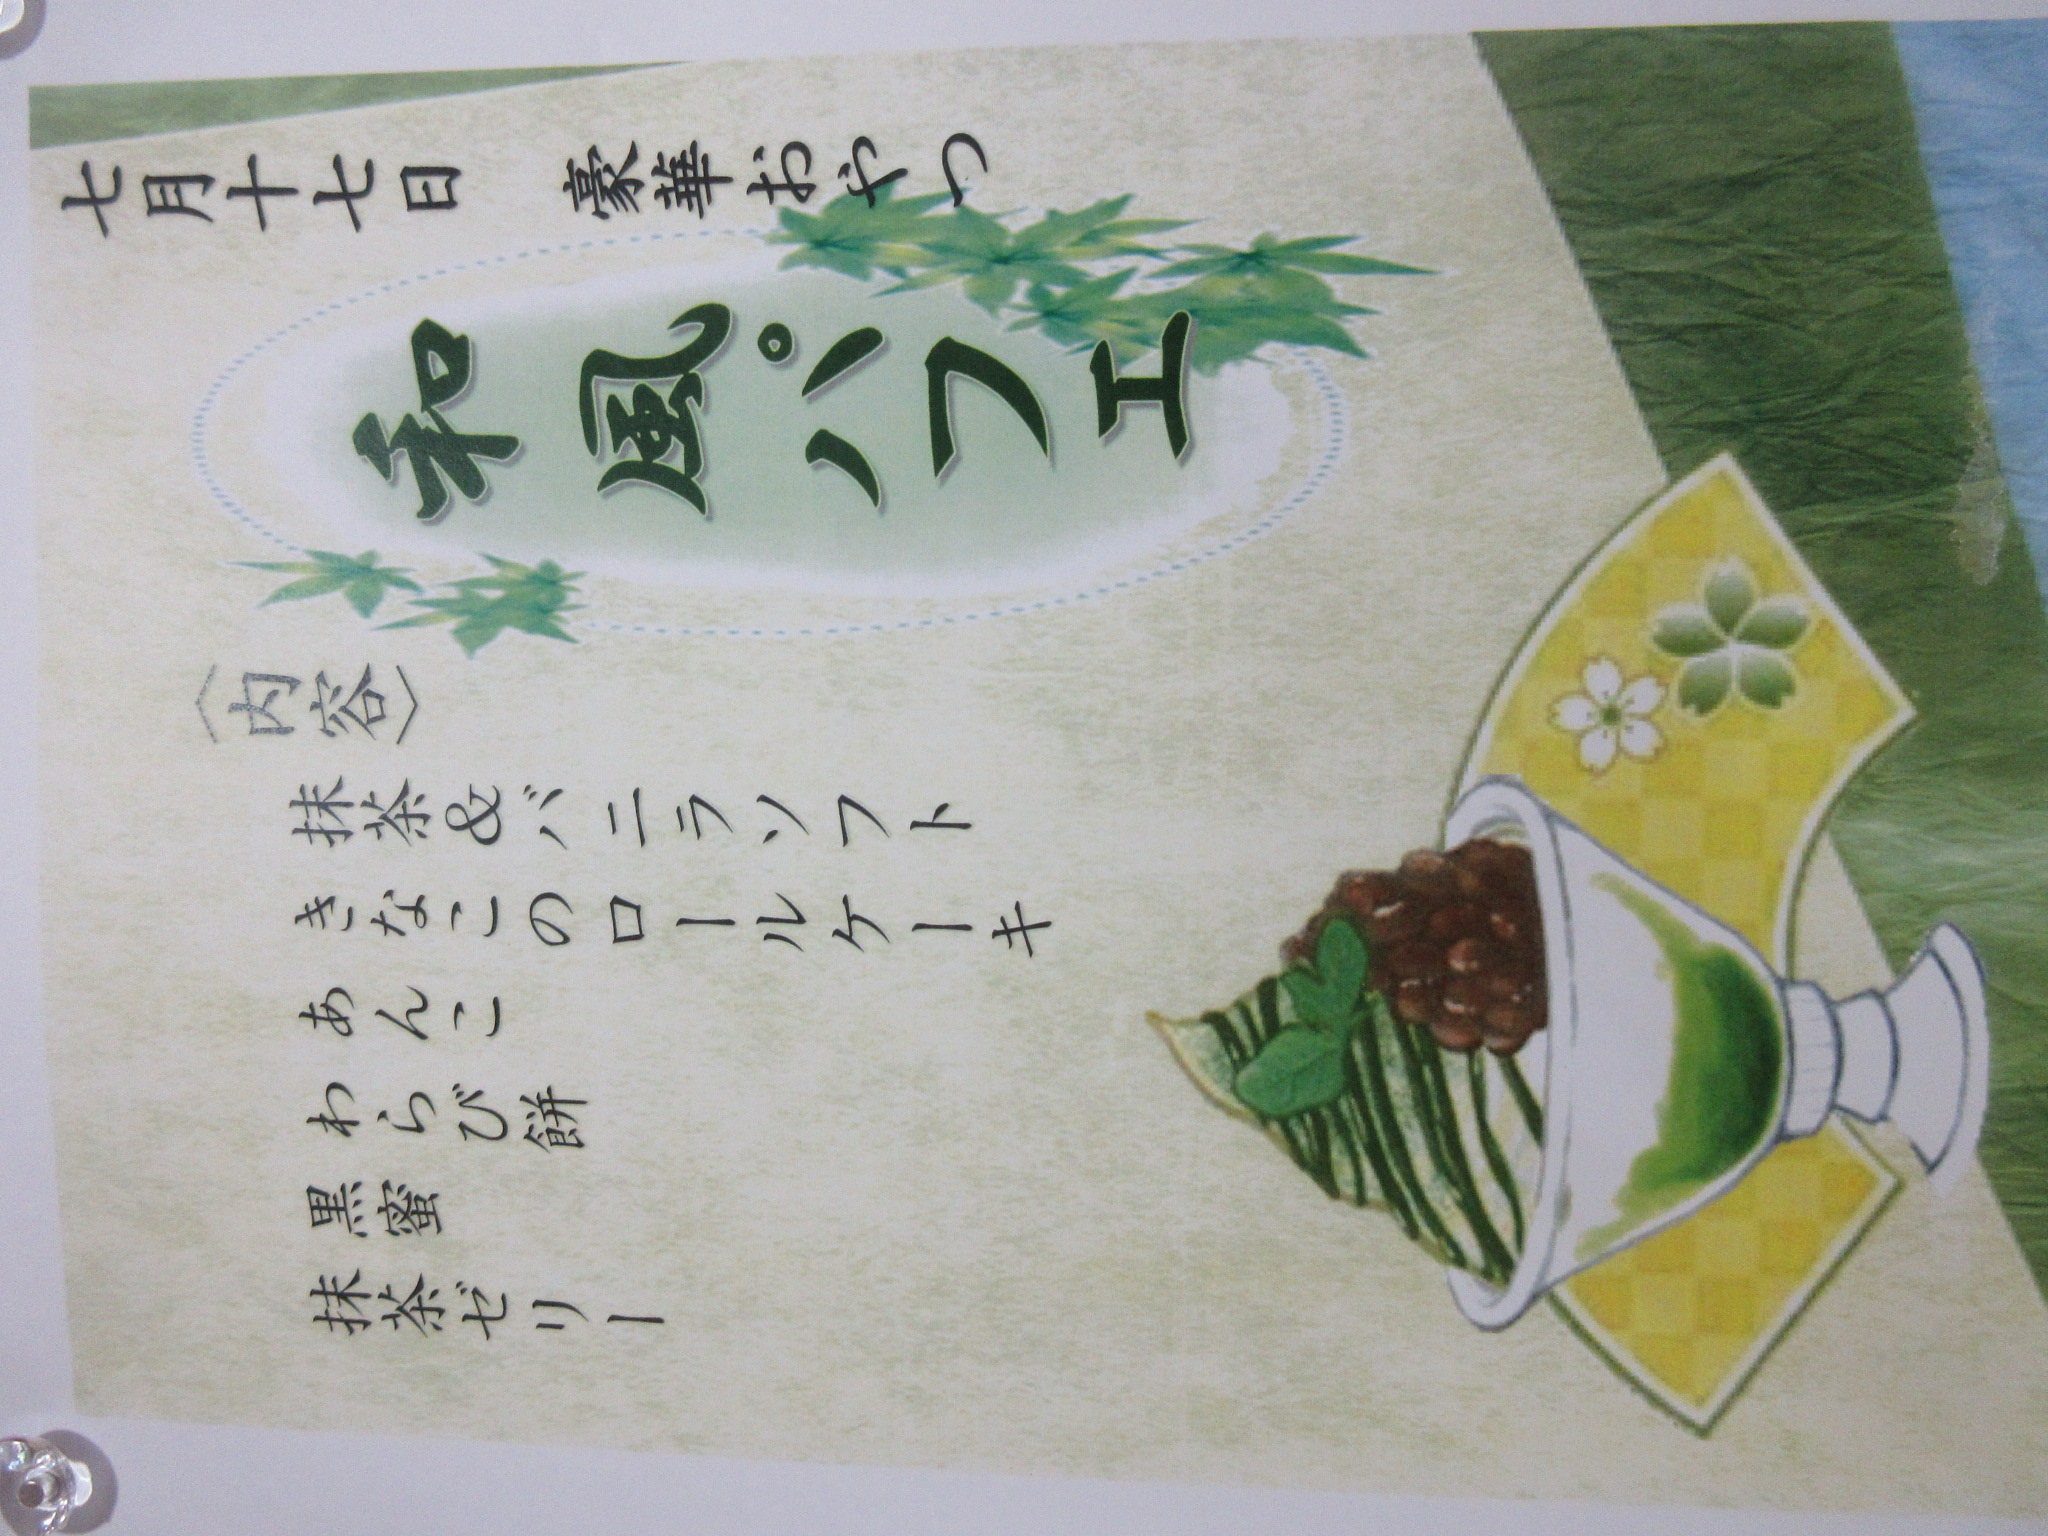 七月十七日　豪華おやつ
和風パフェ
〈内容〉
抹茶&バニラソフト
きなこのロールケーキ
あんこ
わらび餅
黒蜜
抹茶ゼリー